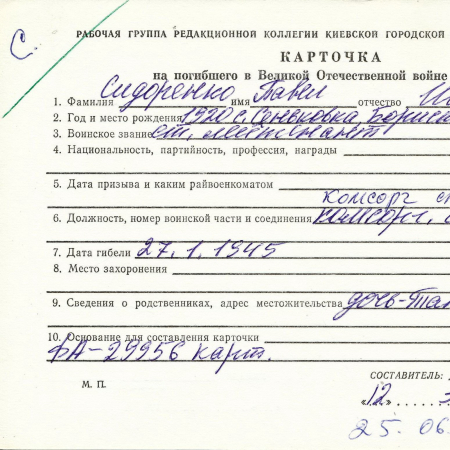 С.
РАБОЧАЯ ГРУППА РЕДАКЦИОННОЙ КОЛЛЕГИИ КИЕВСКОЙ ГОРОДСКОЙ
КАРТОЧКА
на погибшего в Великой Отечественной войне
1. Фамилия Сидоренко имя Павел отчество
2. Год и место рождения 1920 с. Сеньковка
3. Воинское звание ст. лейтенант
4. Национальность, партийность, профессия, награды
5. Дата призыва и каким райвоенкоматом
комсорг
6. Должность, номер воинской части и соединения комсорг,
7. Дата гибели 27.1.1945
8. Место захоронения
9. Сведения о родственниках, адрес местожительства дочь-
10. Основание для составления карточки
ФА-29956 карт.
СОСТАВИТЕЛЬ:
М. П.
«12
25.06